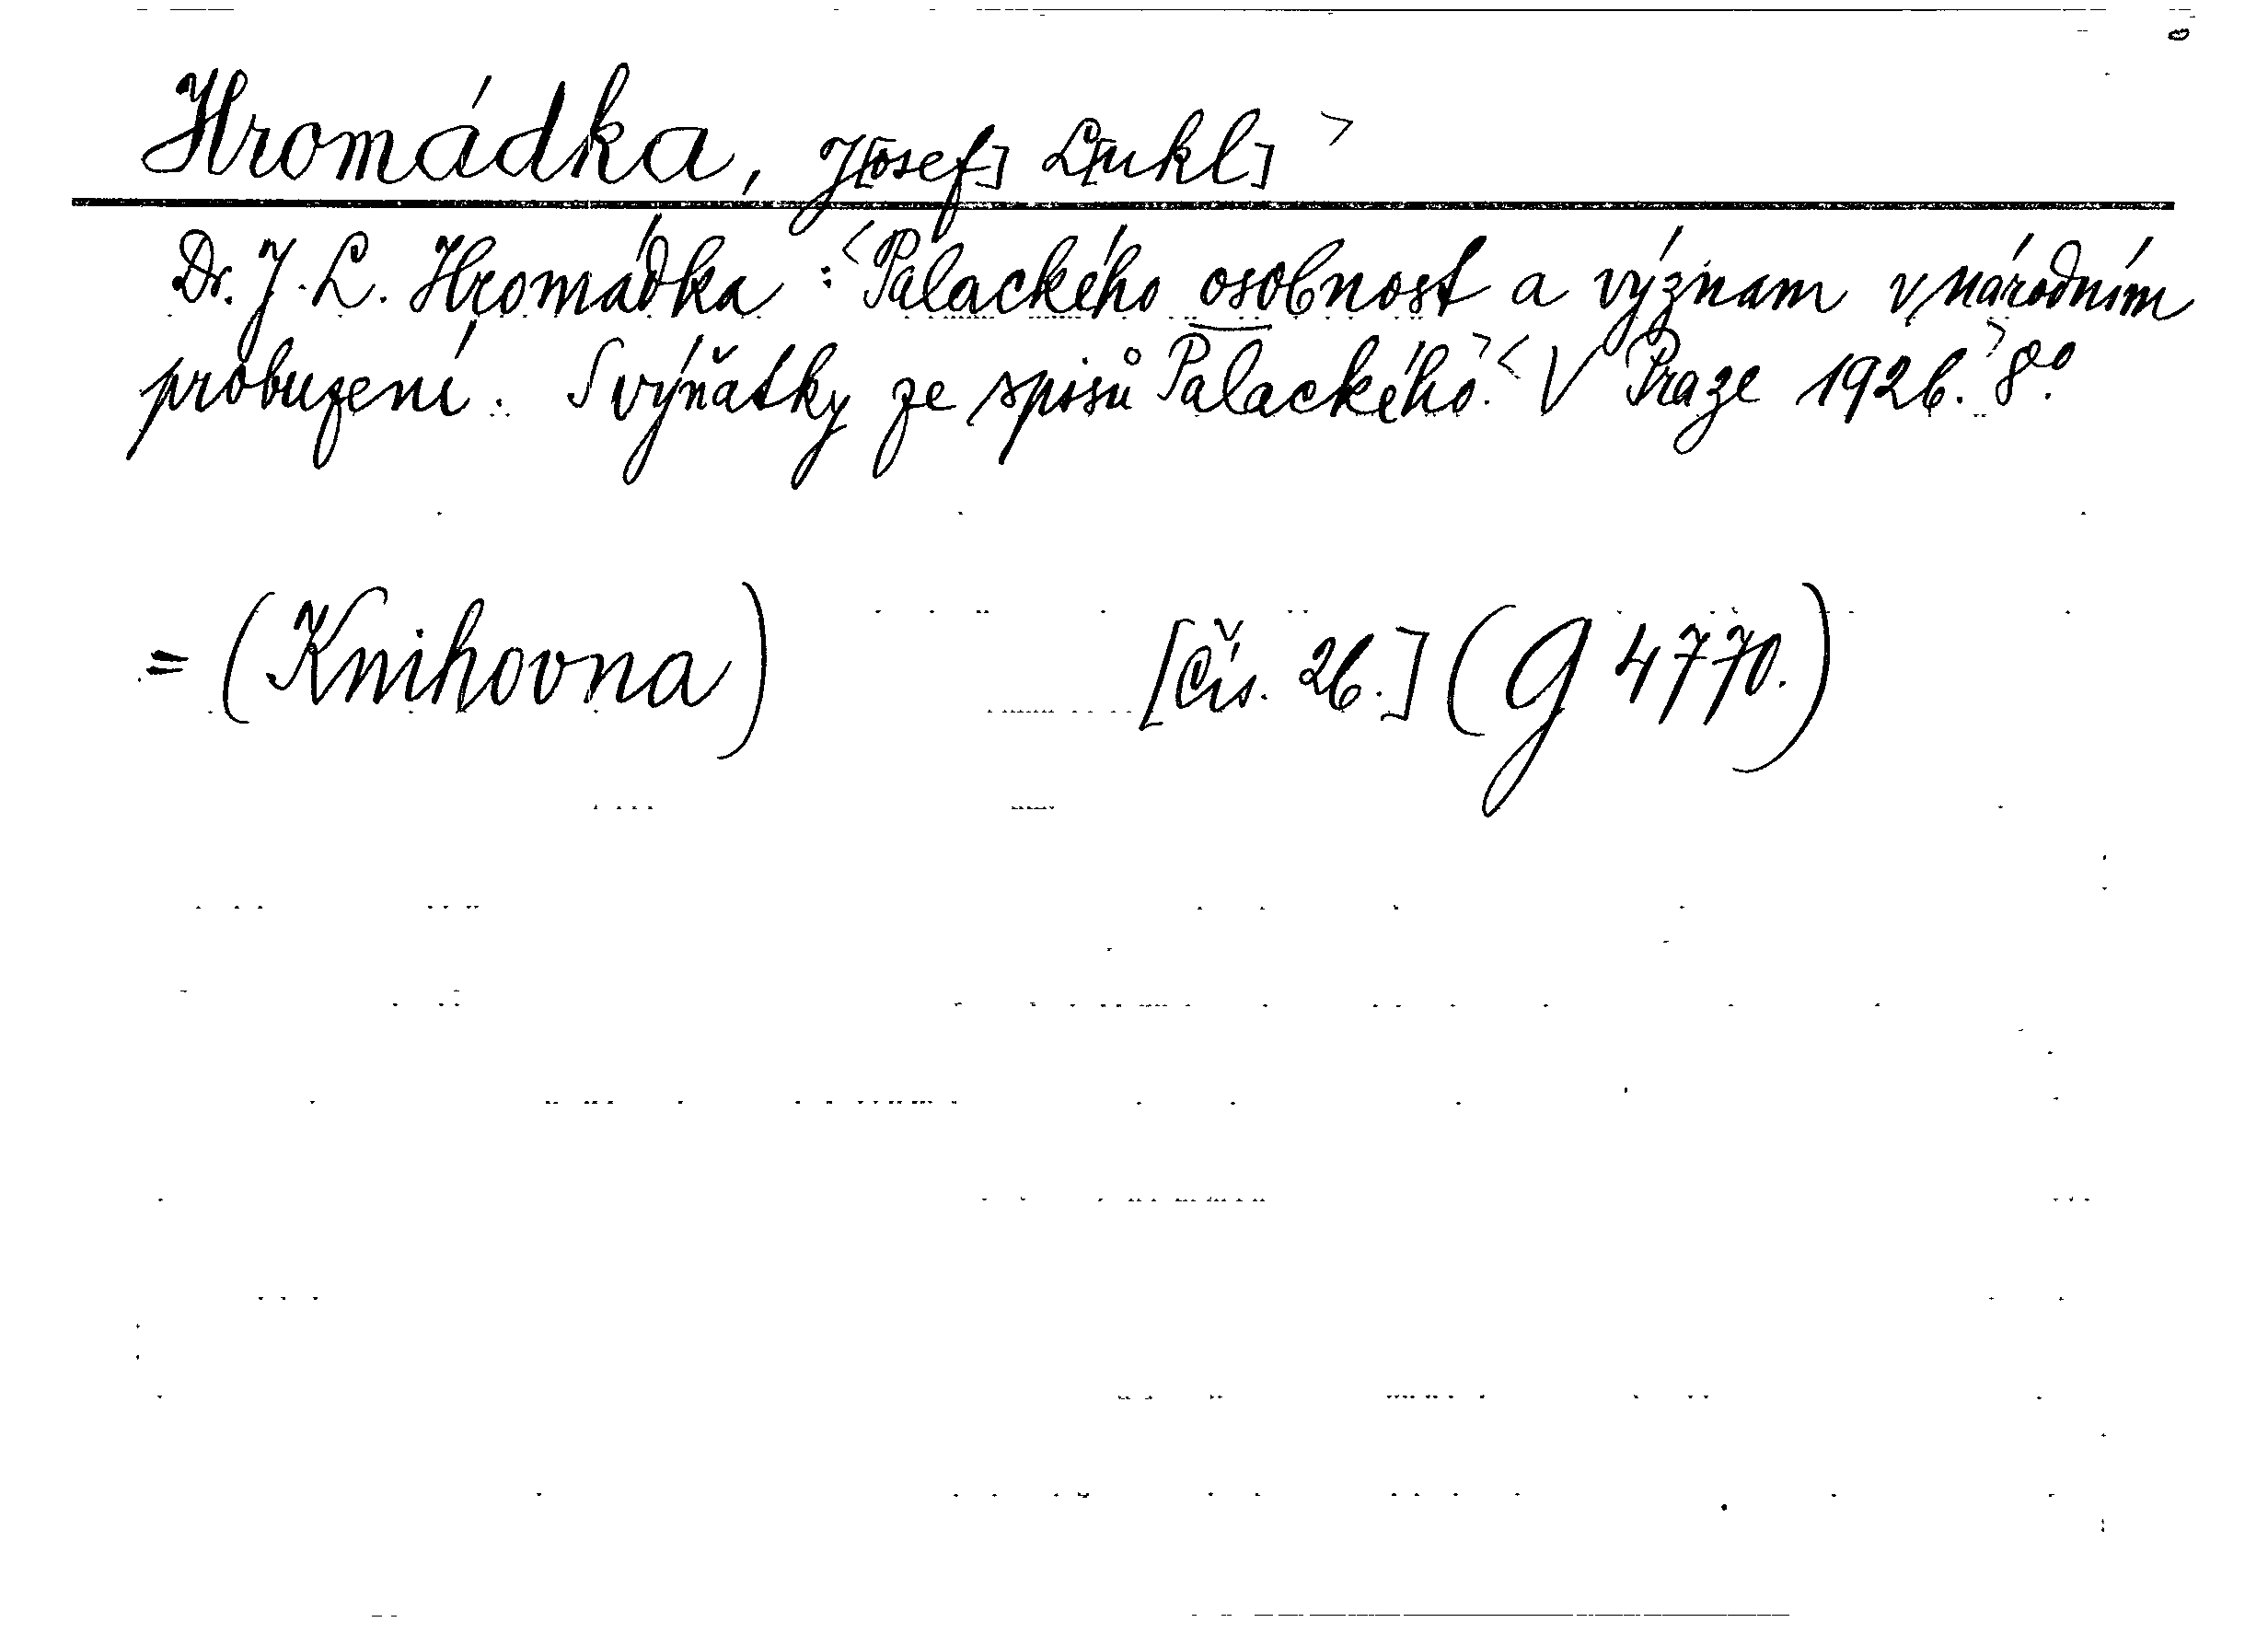 Hromádka, J[osef] L[ukl] >
Dr. J. L. Hromádka : <Palackého osobnost a význam v národním
probuzení. S výňatky ze spisů Palackého.> <V Praze 1926.> 8°.
= (Knihovna) [čís. 26.] (G 4770.)